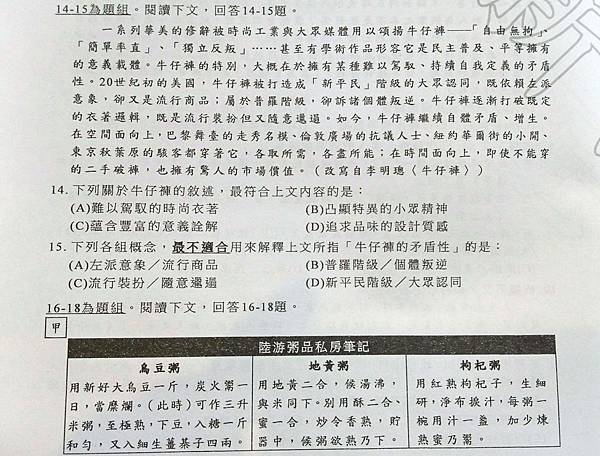 14-15為題組。閱讀下文，回答14-15題。
一系列華美的修辭被時尚工業與大眾媒體用以頌揚牛仔褲——「自由無拘」、
「簡單率直」、「獨立反叛」……甚至有學術作品形容它是民主普及、平等擁有
的意義載體。牛仔褲的特別，大概在於擁有某種難以駕馭、持續自我定義的矛盾
性。20世紀初的美國，牛仔褲被打造成「新平民」階級的大眾認同，既依賴左派
意象，卻又是流行商品；屬於普羅階級，卻訴諸個體叛逆。牛仔褲逐漸打破既定
的衣著邏輯，既是流行裝扮但又隨意邋遢。如今，牛仔褲繼續自體矛盾、增生。
在空間面向上，巴黎舞臺的走秀名模、倫敦廣場的抗議人士、紐約華爾街的小開、
東京秋葉原的駭客都穿著它，各取所需，各盡所能；在時間面向上，即使不能穿
的二手破褲，也擁有驚人的市場價值。（改寫自李明璁〈牛仔褲〉）
14. 下列關於牛仔褲的敘述，最符合上文內容的是：
(A)難以駕馭的時尚衣著 (B)凸顯特異的小眾精神
(C)蘊含豐富的意義詮解 (D)追求品味的設計質感
15. 下列各組概念，最不適合用來解釋上文所指「牛仔褲的矛盾性」的是：
(A)左派意象／流行商品 (B)普羅階級／個體叛逆
(C)流行裝扮／隨意邋遢 (D)新平民階級／大眾認同
16-18為題組。閱讀下文，回答16-18題。
甲
陸游粥品私房筆記
烏豆粥 地黃粥 枸杞粥
用新好大烏豆一斤，炭火鬻一
日，當糜爛。（此時）可作三升
米粥，至極熟，下豆，入糖一斤
和勻，又入細生薑棊子四兩。
用地黃二合，候湯沸，
與米同下。別用酥二合、
蜜一合，炒令香熟，貯
器中，候粥欲熟乃下。
用紅熟枸杞子，生細
研，淨布捩汁，每粥一
椀用汁一盞，加少煉
熟蜜乃鬻。